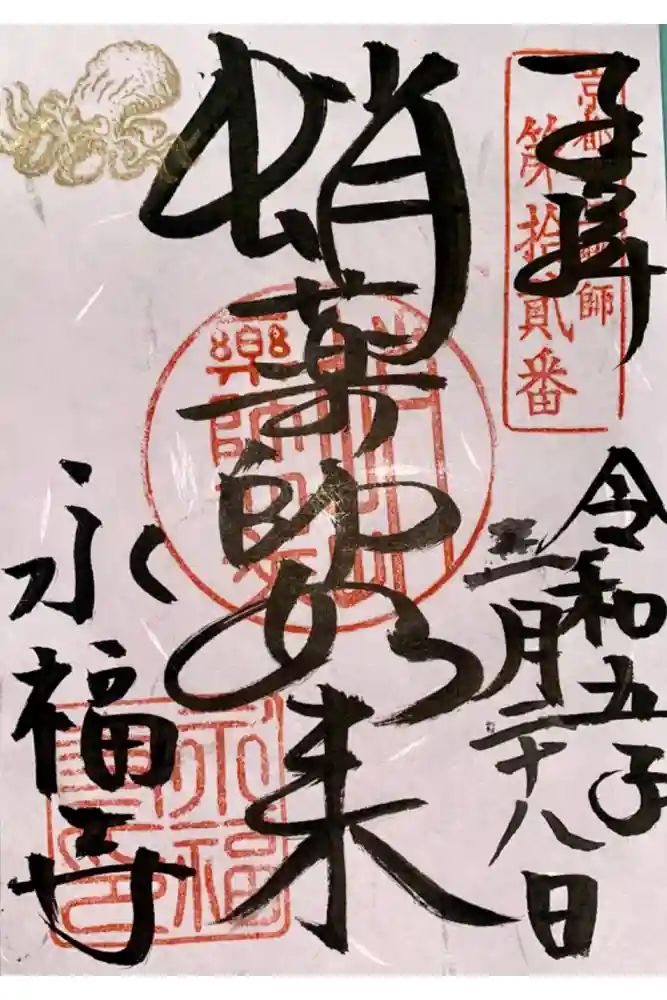 奉拝
京都 師
第拾貳番
令和五年
三月二十八日
蛸薬師如来
永福寺
永福
寺印